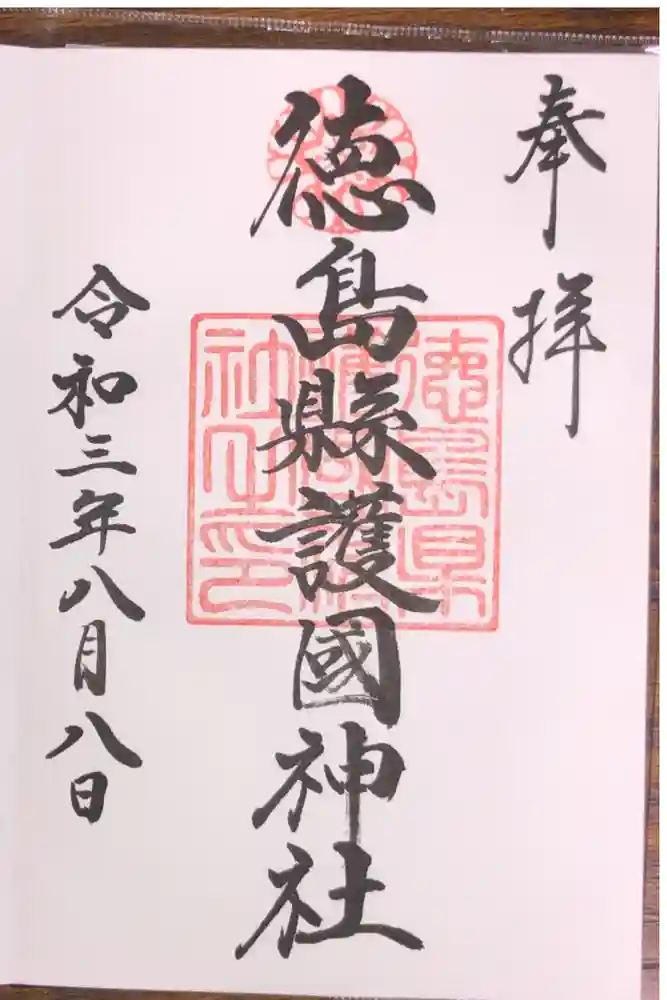 奉拝
徳島縣護國神社
徳島県護國神社之印
令和三年八月八日